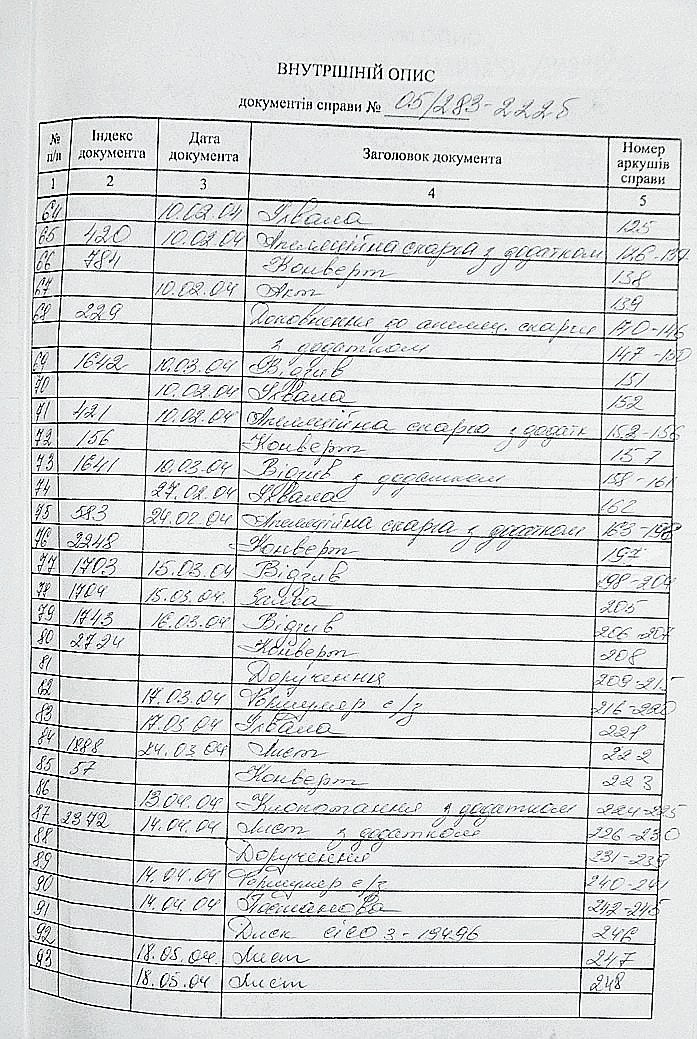 ВНУТРІШНІЙ ОПИС
документів справи № 05/283-2226
№ п/п Індекс документа Дата документа Заголовок документа Номер аркушів справи
1 2 3 4 5
64 10.02.04 Ухвала 125
65 420 10.02.04 Апеляційна скарга з додатком 126-137
66 784 Конверт 138
67 10.02.04 Акт 139
68 229 Доповнення до апеляц. скарги 140-146
з додатком 147-150
69 1642 10.03.04 Відгив 151
70 10.02.04 Ухвала 152
71 421 10.02.04 Апеляційна скарга з додатк 152-156
72 156 Конверт 157
73 1641 10.03.04 Відгив з додатком 158-161
74 27.02.04 Ухвала 162
75 583 24.02.04 Апеляційна скарга з додатком 163-196
76 2248 Конверт 197
77 1703 15.03.04 Відгив 198-204
78 1704 15.03.04. Заява 205
79 1743 16.03.04 Відгив 206-207
80 2724 Конверт 208
81 Доручення 209-215
82 17.03.04 Формуляр с/з 216-220
83 17.03.04 Ухвала 221
84 1888 24.03.04 Лист 222
85 57 Конверт 223
86 13.04.04 Клопотання з додатком 224-225
87 2372 14.04.04 Лист з додатком 226-230
88 Доручення 231-239
89 14.04.04 Формуляр с/з 240-241
90 14.04.04 Постанова 242-245
91 Диск 3-19496 246
92 18.05.04. Лист 247
93 18.05.04 Лист 248